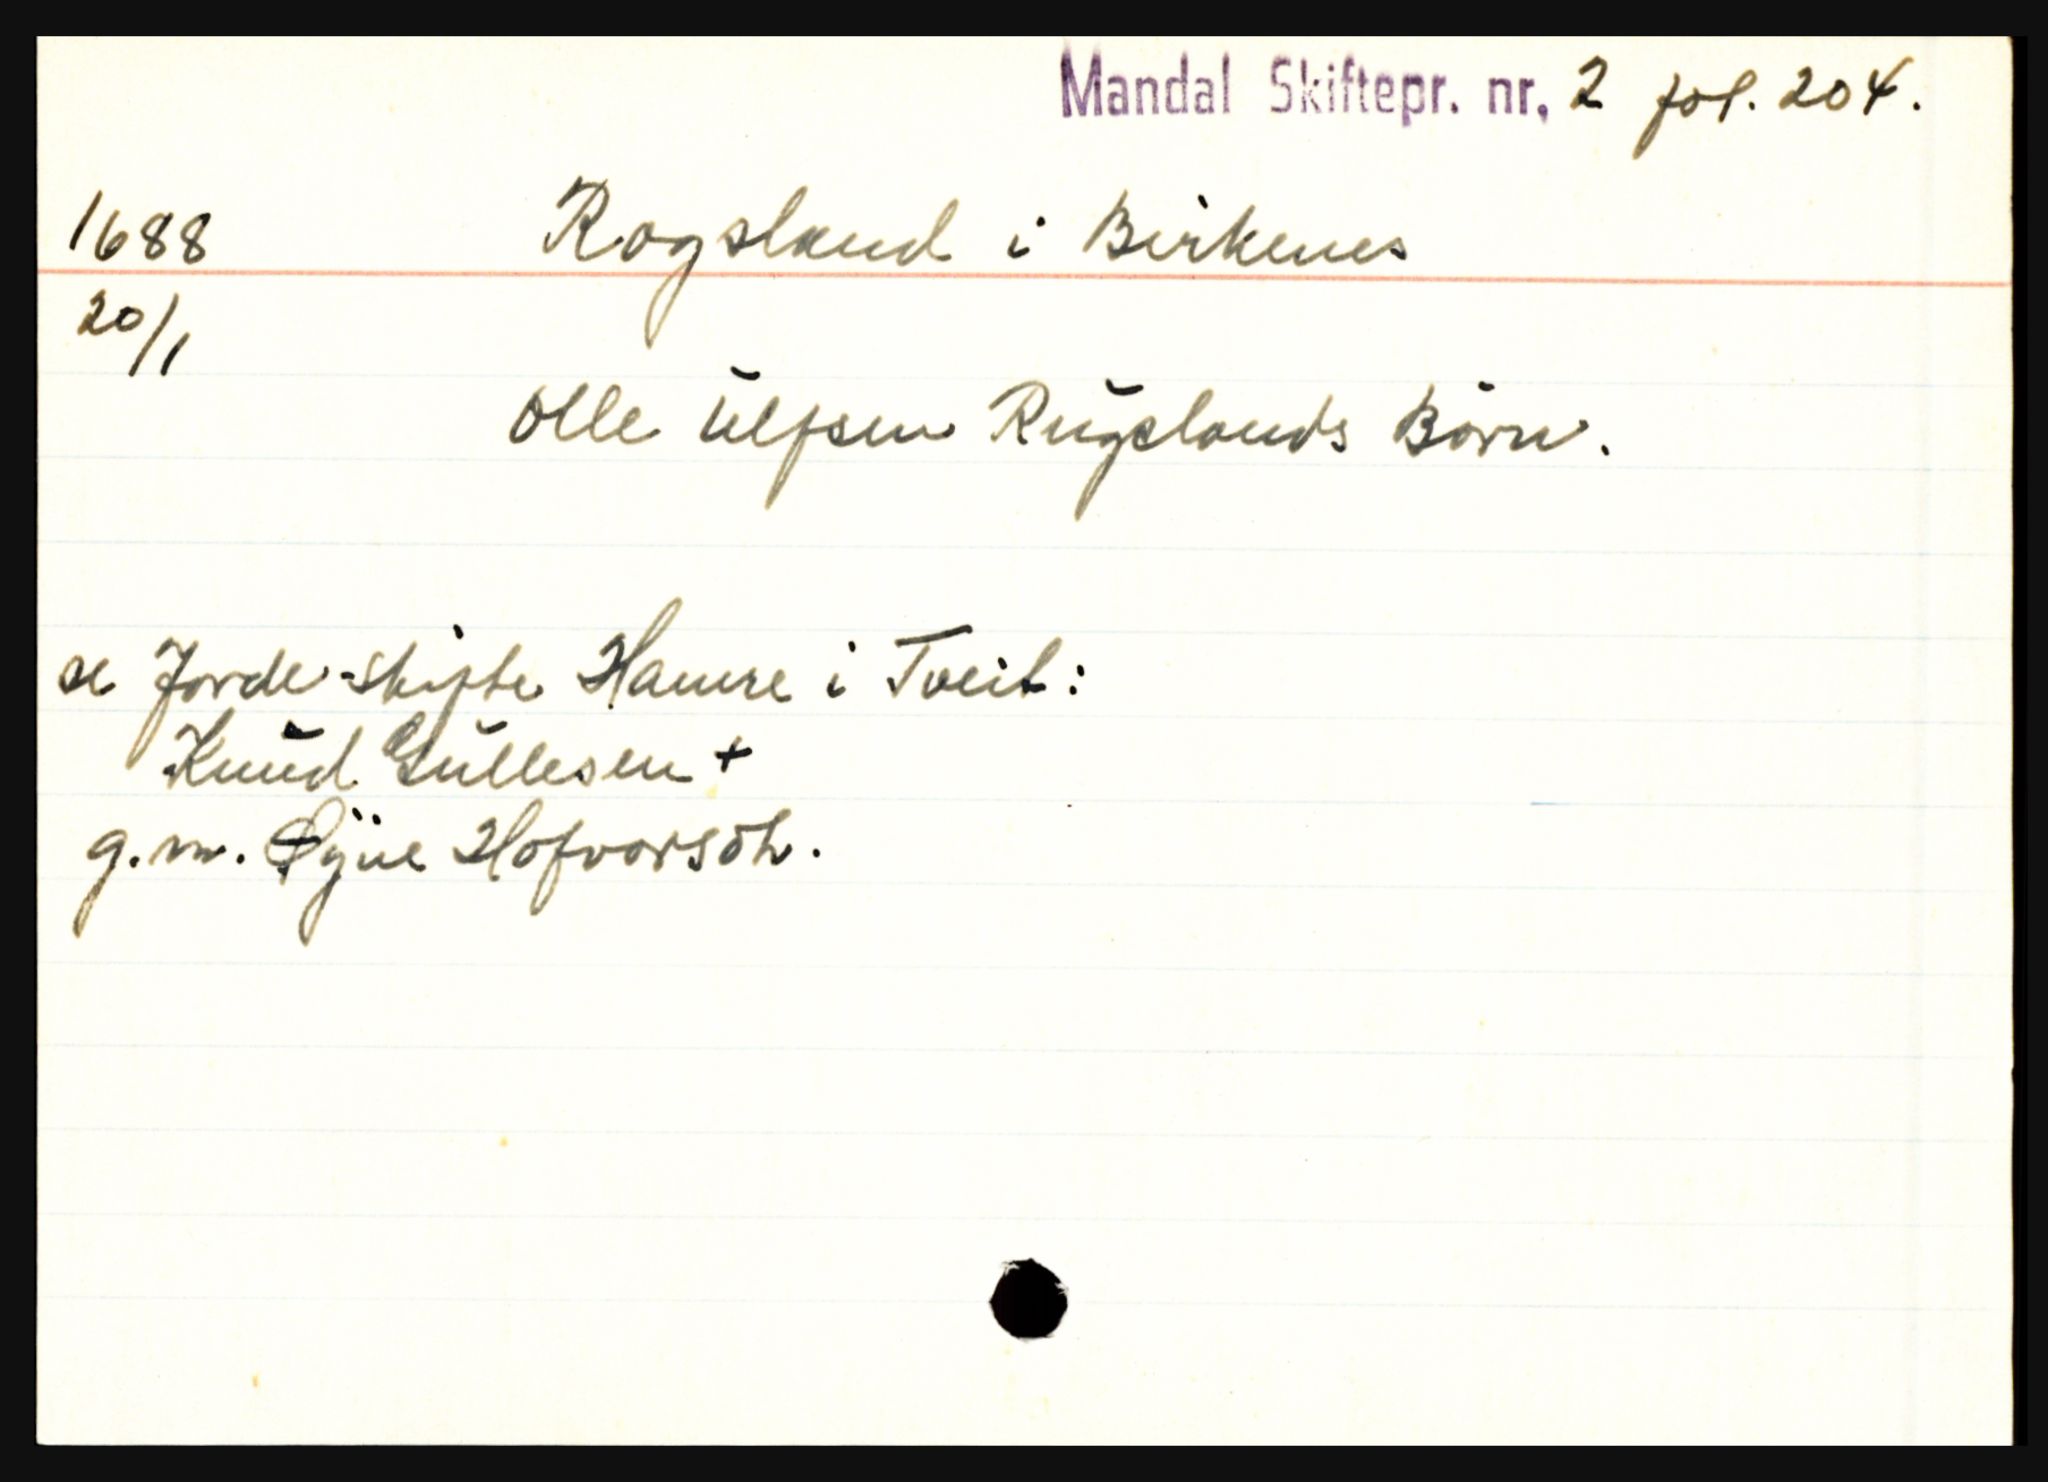 Mandal Skiftepr. nr. 2 fol. 204.
1688 Rogsland i Birkenes
20/1
Olle Ulfsen Rugslands Børn.
se Jorde-skifte Hamre i Tveit:
Knud Gullesen +
g.m. Øyne Hofvorsdh.